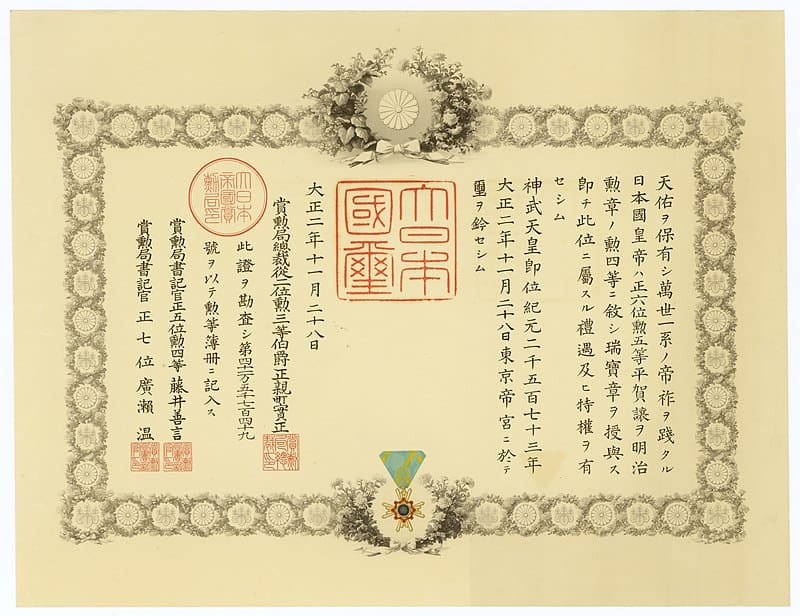 天佑ヲ保有シ萬世一系ノ帝祚ヲ踐タル
日本國皇帝ハ正六位勲五等平賀讓ヲ明治
勲章ノ勲四等ニ敘シ瑞寶章ヲ授與ス
卽チ此位ニ屬スル禮遇及ヒ特權ヲ有
セシム
神武天皇卽位紀元二千五百七十三年
大正二年十一月二十八日東京帝宮ニ於テ
璽ヲ鈐セシム
大日本
國璽
大正二年十一月二十八日
賞勲局總裁從二位勲三等伯爵正親町實正
大日本
帝國賞
勲局印
此證ヲ勘査シ第四十二万五千七百四十九
號ヲ以テ勲等簿册ニ記入ス
賞勲局書記官正五位勲四等藤井善言
賞勲局書記官正七位廣瀬温